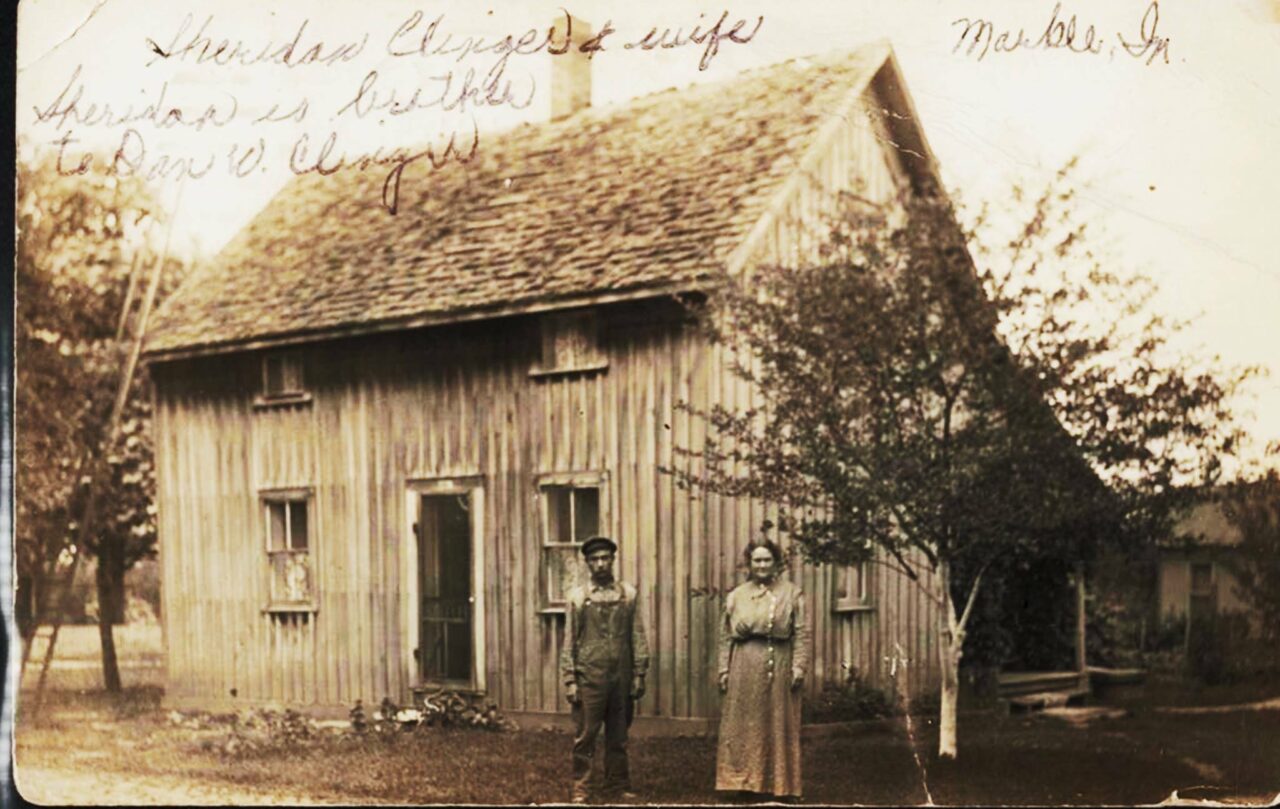 Sheridan Clinger & wife
Markle, In.
Sheridan is brother
to Dan W. Clinger